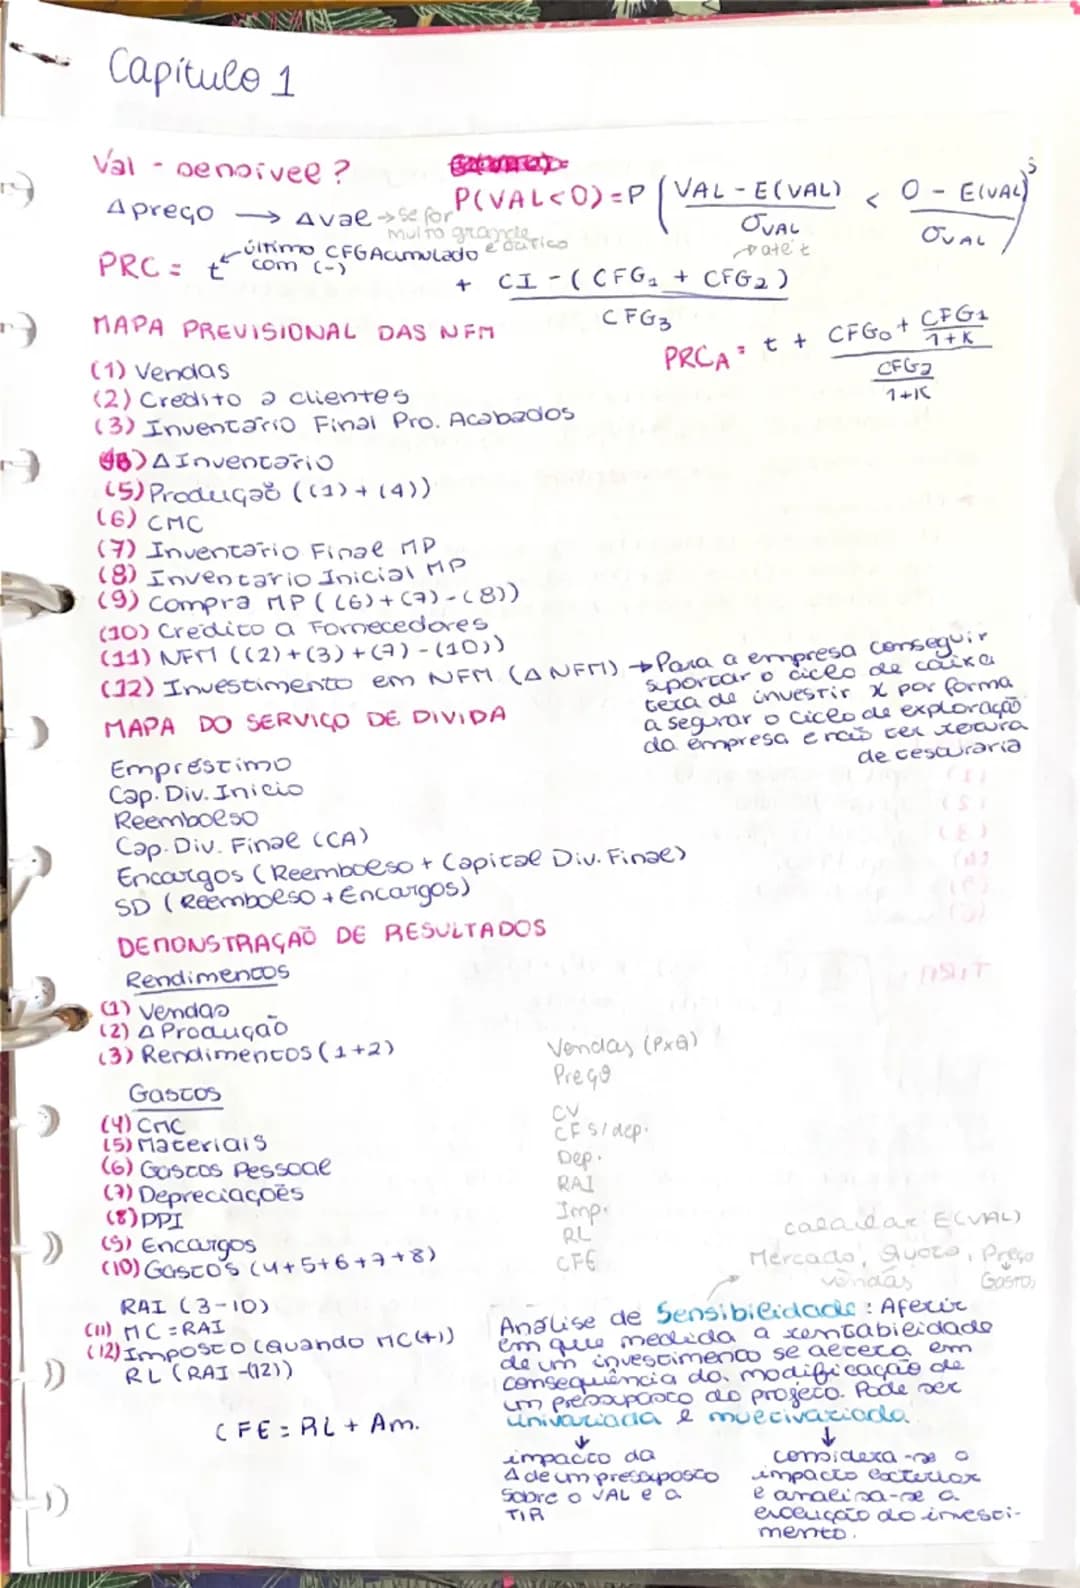 Capítulo 1
Val - sensível?
P(VAL<0) = P ( VAL - E(VAL) / σVAL < 0 - E(VAL) / σVAL )
Δpreço → Δval → se for muito grande é crítico
PRC = t ← último CFGAcumulado com (-) + CI - (CFG1 + CFG2) / CFG3
→ até t
MAPA PREVISIONAL DAS NFM
PRCA = t + CFG0 + CFG1/1+K / CFG2/1+K
(1) Vendas
(2) Credito a clientes
(3) Inventário Final Pro. Acabados
(4) Δ Inventário
(5) Produção ((1)+(4))
(6) CMC
(7) Inventário Final MP
(8) Inventário Inicial MP
(9) Compra MP ((6)+(7)-(8))
(10) Credito a Fornecedores
(11) NFM ((2)+(3)+(7)-(10))
(12) Investimento em NFM (Δ NFM) → Para a empresa conseguir
suportar o ciclo de caixa
terá de investir x por forma
a segurar o ciclo de exploração
da empresa e não ter rotura
de tesouraria
MAPA DO SERVIÇO DE DIVIDA
Empréstimo
Cap. Div. Inicio
Reembolso
Cap. Div. Final (CA)
Encargos (Reembolso + Capital Div. Final)
SD (Reembolso + Encargos)
DEMONSTRAÇÃO DE RESULTADOS
Rendimentos
(1) Vendas
(2) Δ Produção
(3) Rendimentos (1+2)
Gastos
(4) CMC
(5) Materiais
(6) Gastos Pessoal
(7) Depreciações
(8) PPI
(9) Encargos
(10) Gastos (4+5+6+7+8)
RAI (3-10)
(11) MC = RAI
(12) Imposto (Quando MC(+))
RL (RAI -(12))
CFE = RL + Am.
Vendas (PxQ)
Preço
CV
CF s/ dep.
Dep.
RAI
Imp.
RL
CFE
calcular E(VAL)
Mercado, Quota, Preço
vendas Gastos
Análise de Sensibilidade: Aferir
em que medida a rentabilidade
de um investimento se altera em
consequência da modificação de
um pressuposto do projeto. Pode ser
univariada e multivariada
↓
impacto da
Δ de um pressuposto
sobre o VAL e a
TIR
↓
considera-se o
impacto exterior
e analisa-se a
execução do investi-
mento.